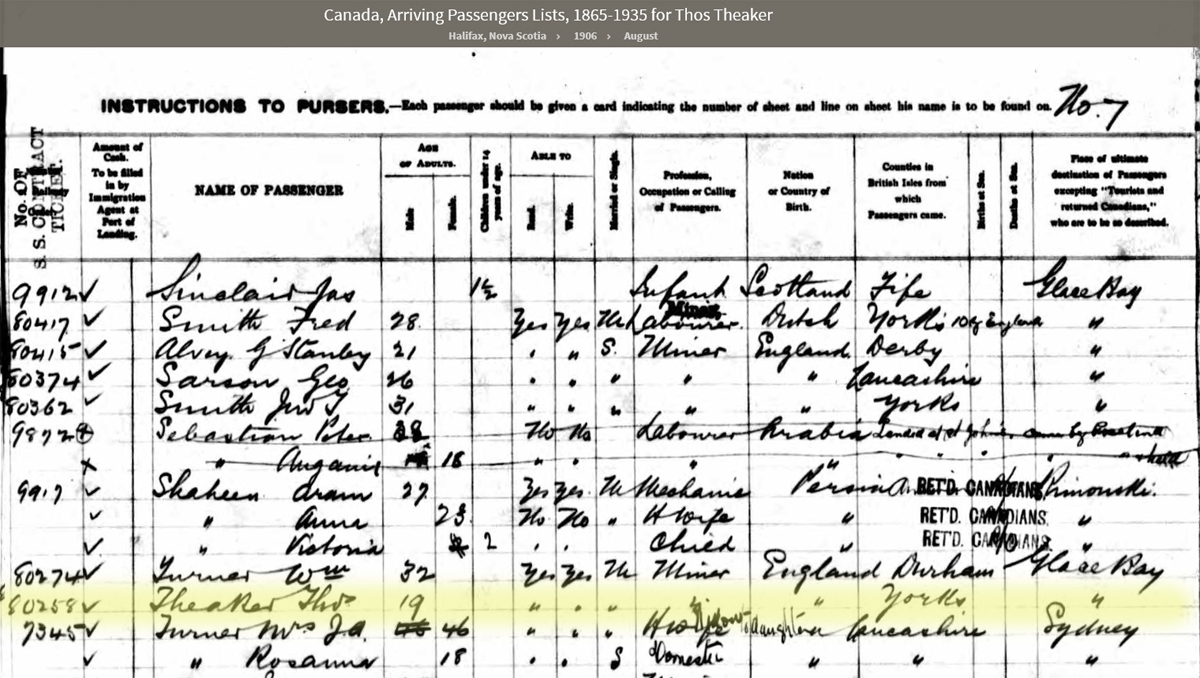 Canada, Arriving Passengers Lists, 1865-1935 for Thos Theaker
Halifax, Nova Scotia › 1906 › August
INSTRUCTIONS TO PURSERS.—Each passenger should be given a card indicating the number of sheet and line on sheet his name is to be found on. No. 7
S. S. CONTRACT TICKET. No. OF
Amount of Cash. To be filled in by Immigration Agent at Port of Landing.
NAME OF PASSENGER
AGE OF ADULTS.
Male
Female.
Children under 14 years of age.
ABLE TO
Read.
Write.
Married or Single.
Profession, Occupation or Calling of Passengers.
Nation or Country of Birth.
Counties in British Isles from which Passengers came.
Births at Sea.
Deaths at Sea.
Place of ultimate destination of Passengers excepting "Tourists and returned Canadians," who are to be so described.
9912 ✓ Sinclair Jas 1½ Infant Scotland Fife Glace Bay
80417 ✓ Smith Fred 28 Yes Yes M Labourer Dutch Yorks "
80415 ✓ Alvey G Stanley 21 " " S. Miner England Derby "
80374 ✓ Sarson Geo 26 " " " " " Lancashire "
80362 ✓ Smith Jno T 31 " " " " " Yorks "
9872 Sebastian Peter 38 No No Labourer Arabia
x " 18 " " "
9917 ✓ Shaheen 27 Yes Yes M Mechanic Persia RET'D. CANADIANS Rimouski.
✓ " Anna 23 No No " H Wife " RET'D. CANADIANS "
✓ " Victoria 2 " " Child " RET'D. CANADIANS "
80274 ✓ Turner Wm 32 Yes Yes M Miner England Durham Glace Bay
80258 ✓ Theaker Thos 19 " " " " " Yorks "
7345 ✓ Turner Mrs Ja. 46 " " " H Wife daughter Lancashire Sydney
✓ " Rosanna 18 " " S Domestic " " "